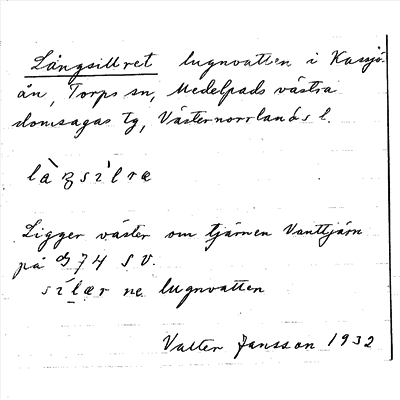 Långsillret lugnvatten i Kassjö-
ån, Torps sn, Medelpads västra
domsagas tg, Västernorrlands l.
Ligger väster om tjärnen Vanttjärn
på G 74 S V.
sìlær ne. lugnvatten
Valter Jansson 1932